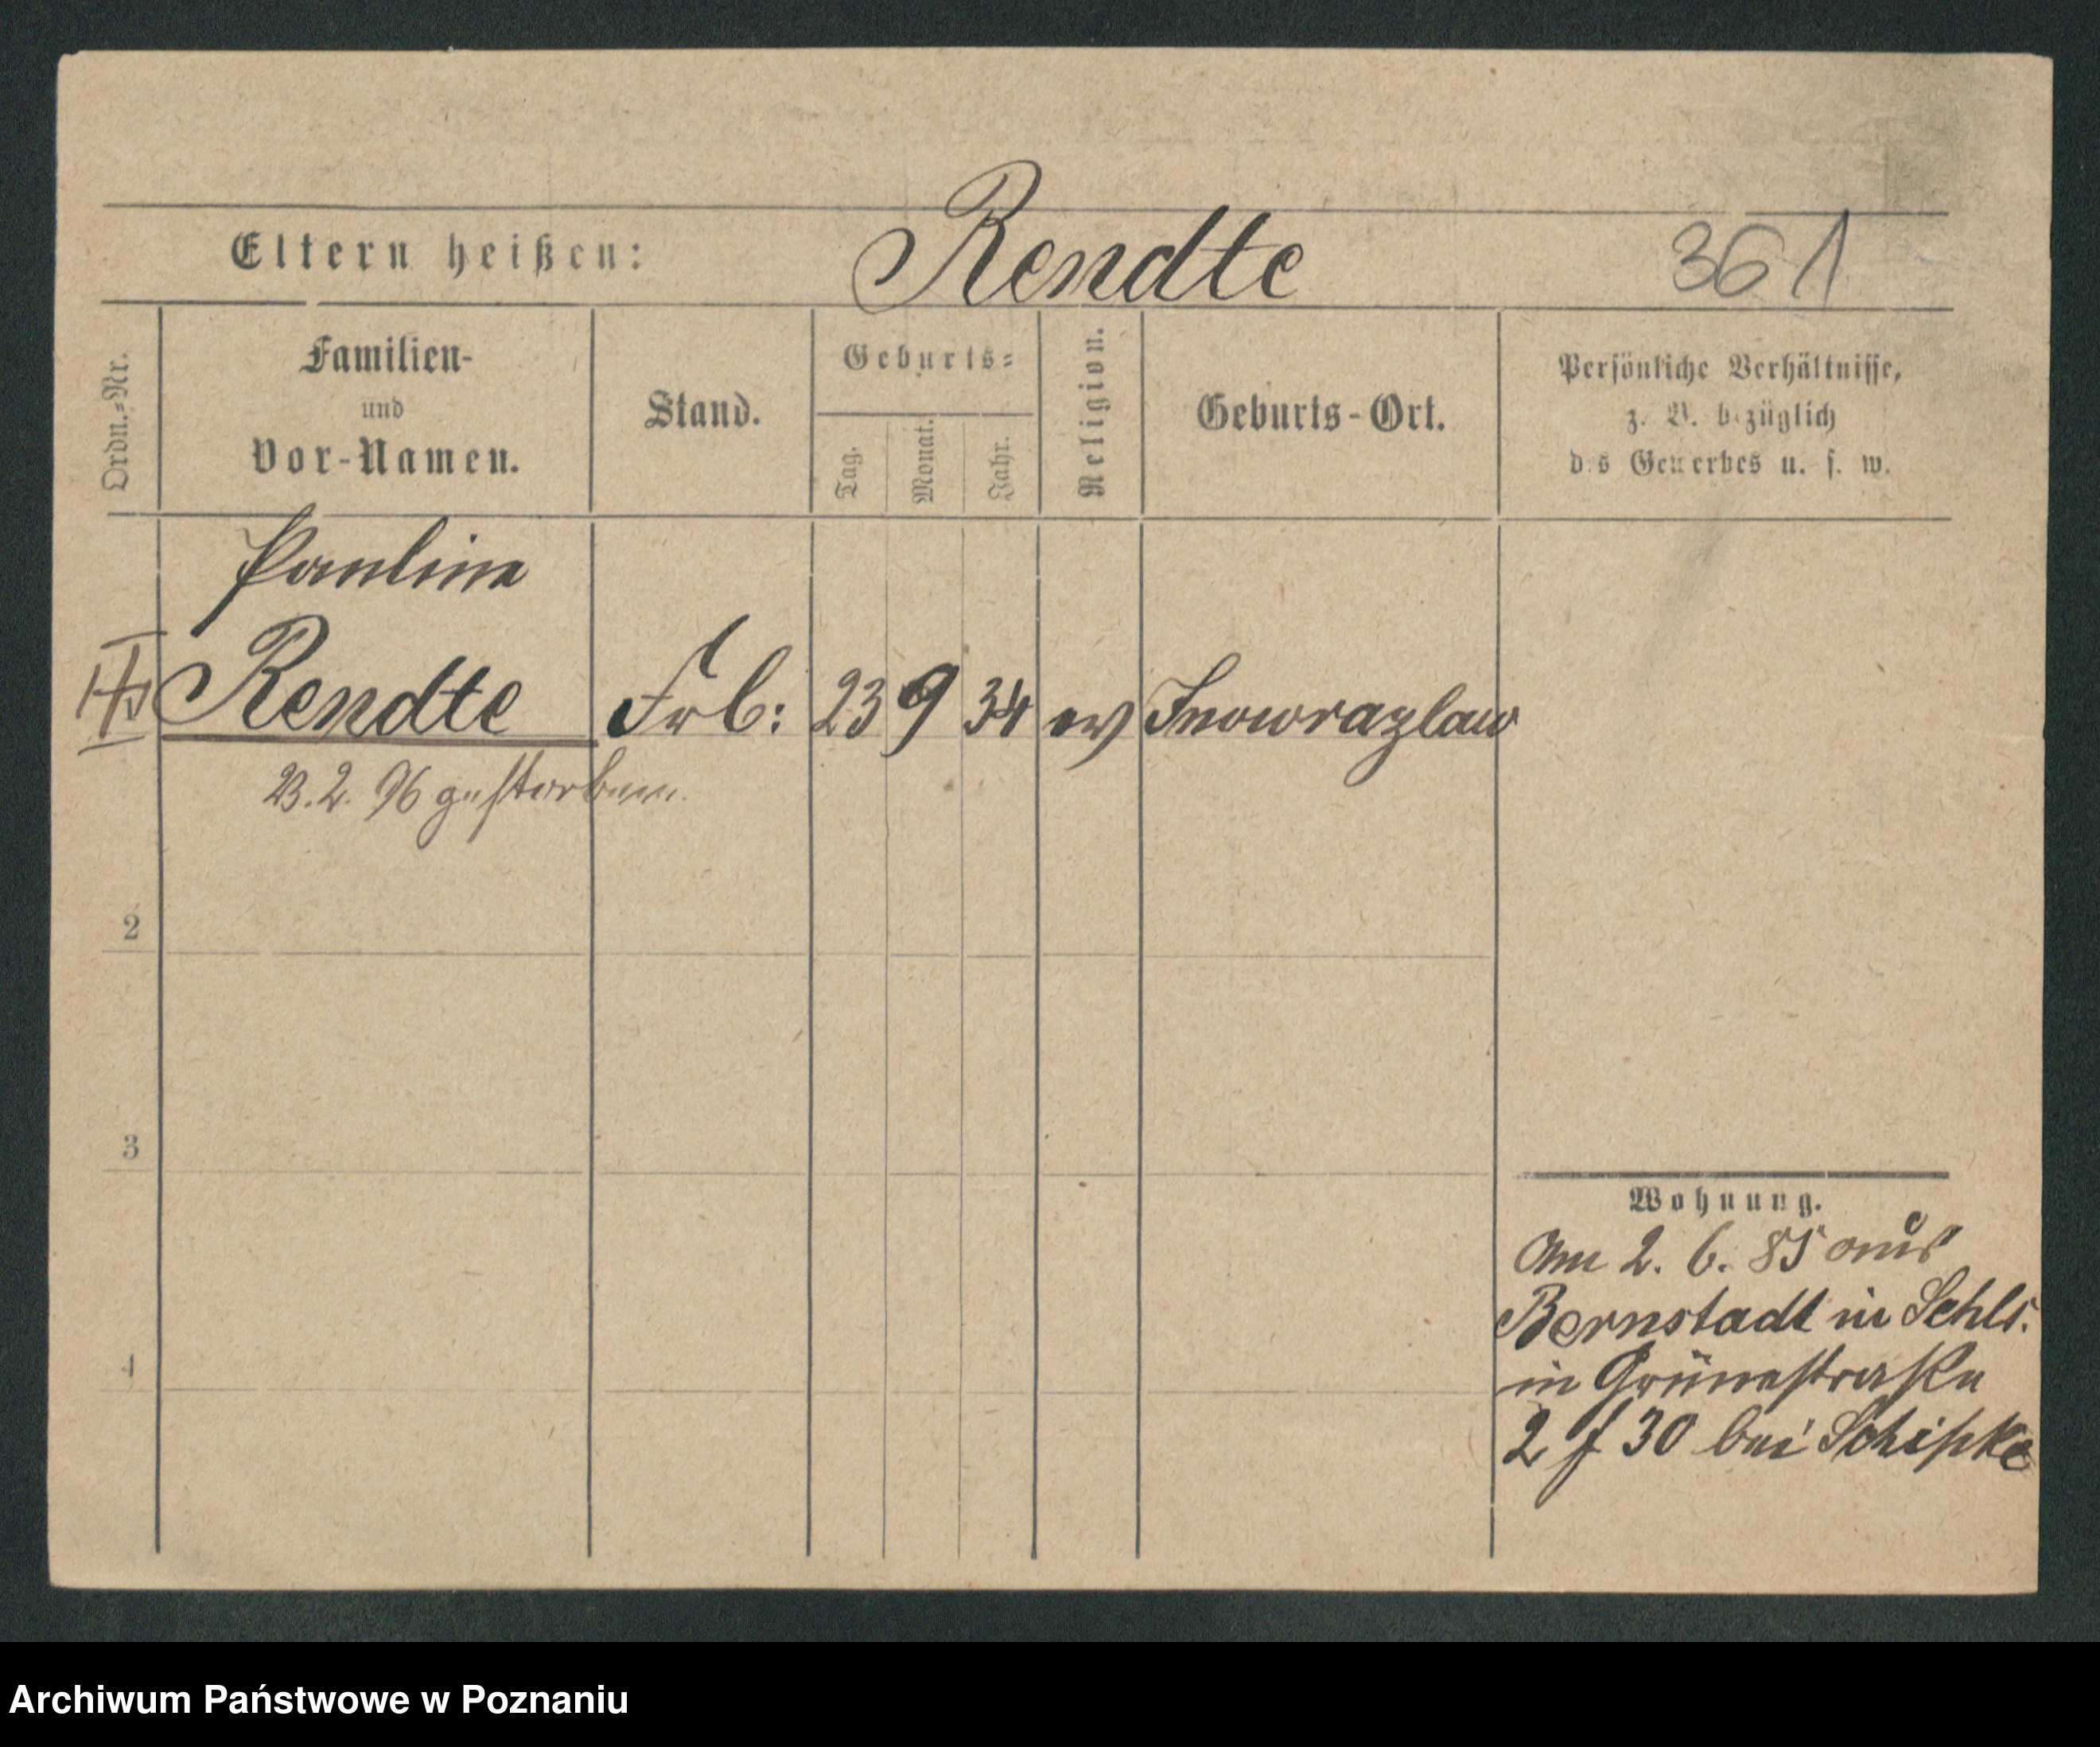 Eltern heißen: Rendte 361
Ordn.-Nr.
Familien-
und
Vor-Namen.
Stand.
Geburts-
Tag.
Monat.
Jahr.
Religion.
Geburts-Ort.
Persönliche Verhältnisse,
z. B. bezüglich
des Gewerbes u. s. w.
Pauline
Rendte Frl: 23 9 34 ev Inowrazlaw
23. 2. 96 gestorben.
2
3
4
Wohnung.
Am 2. 6. 85 aus
Bernstadt in Schls.
in Grünestraße
2 f 30 bei Schipke
Archiwum Państwowe w Poznaniu